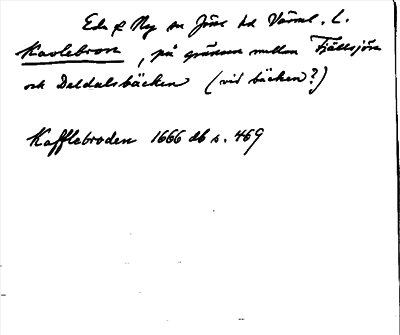 Eda & Ny sn Jösse hd Värml. L.
Kavlebron, på gränsen mellan Fjällsjön
och Daldalsbäcken (vid bäcken?)
Kafflebroden 1666 db s. 469